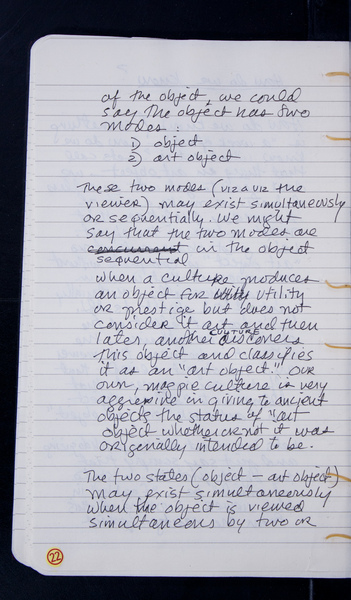 of the object, we could
say the object has two
modes:
1) object
2) art object
These two modes (viz a viz the
viewer) may exist simultaneously
or sequentially. We might
say that the two modes are
concurrent in the object
sequential
when a culture produces
an object for utility
or prestige but does not
consider it art and then
later, another culture discovers
this object and classifies
it as an "art object." Our
own, magpie culture is very
aggressive in giving to ancient
objects the status of "art
object whether or not it was
originally intended to be.
The two states (object - art object)
may exist simultaneously
when the object is viewed
simultaneous by two or
22